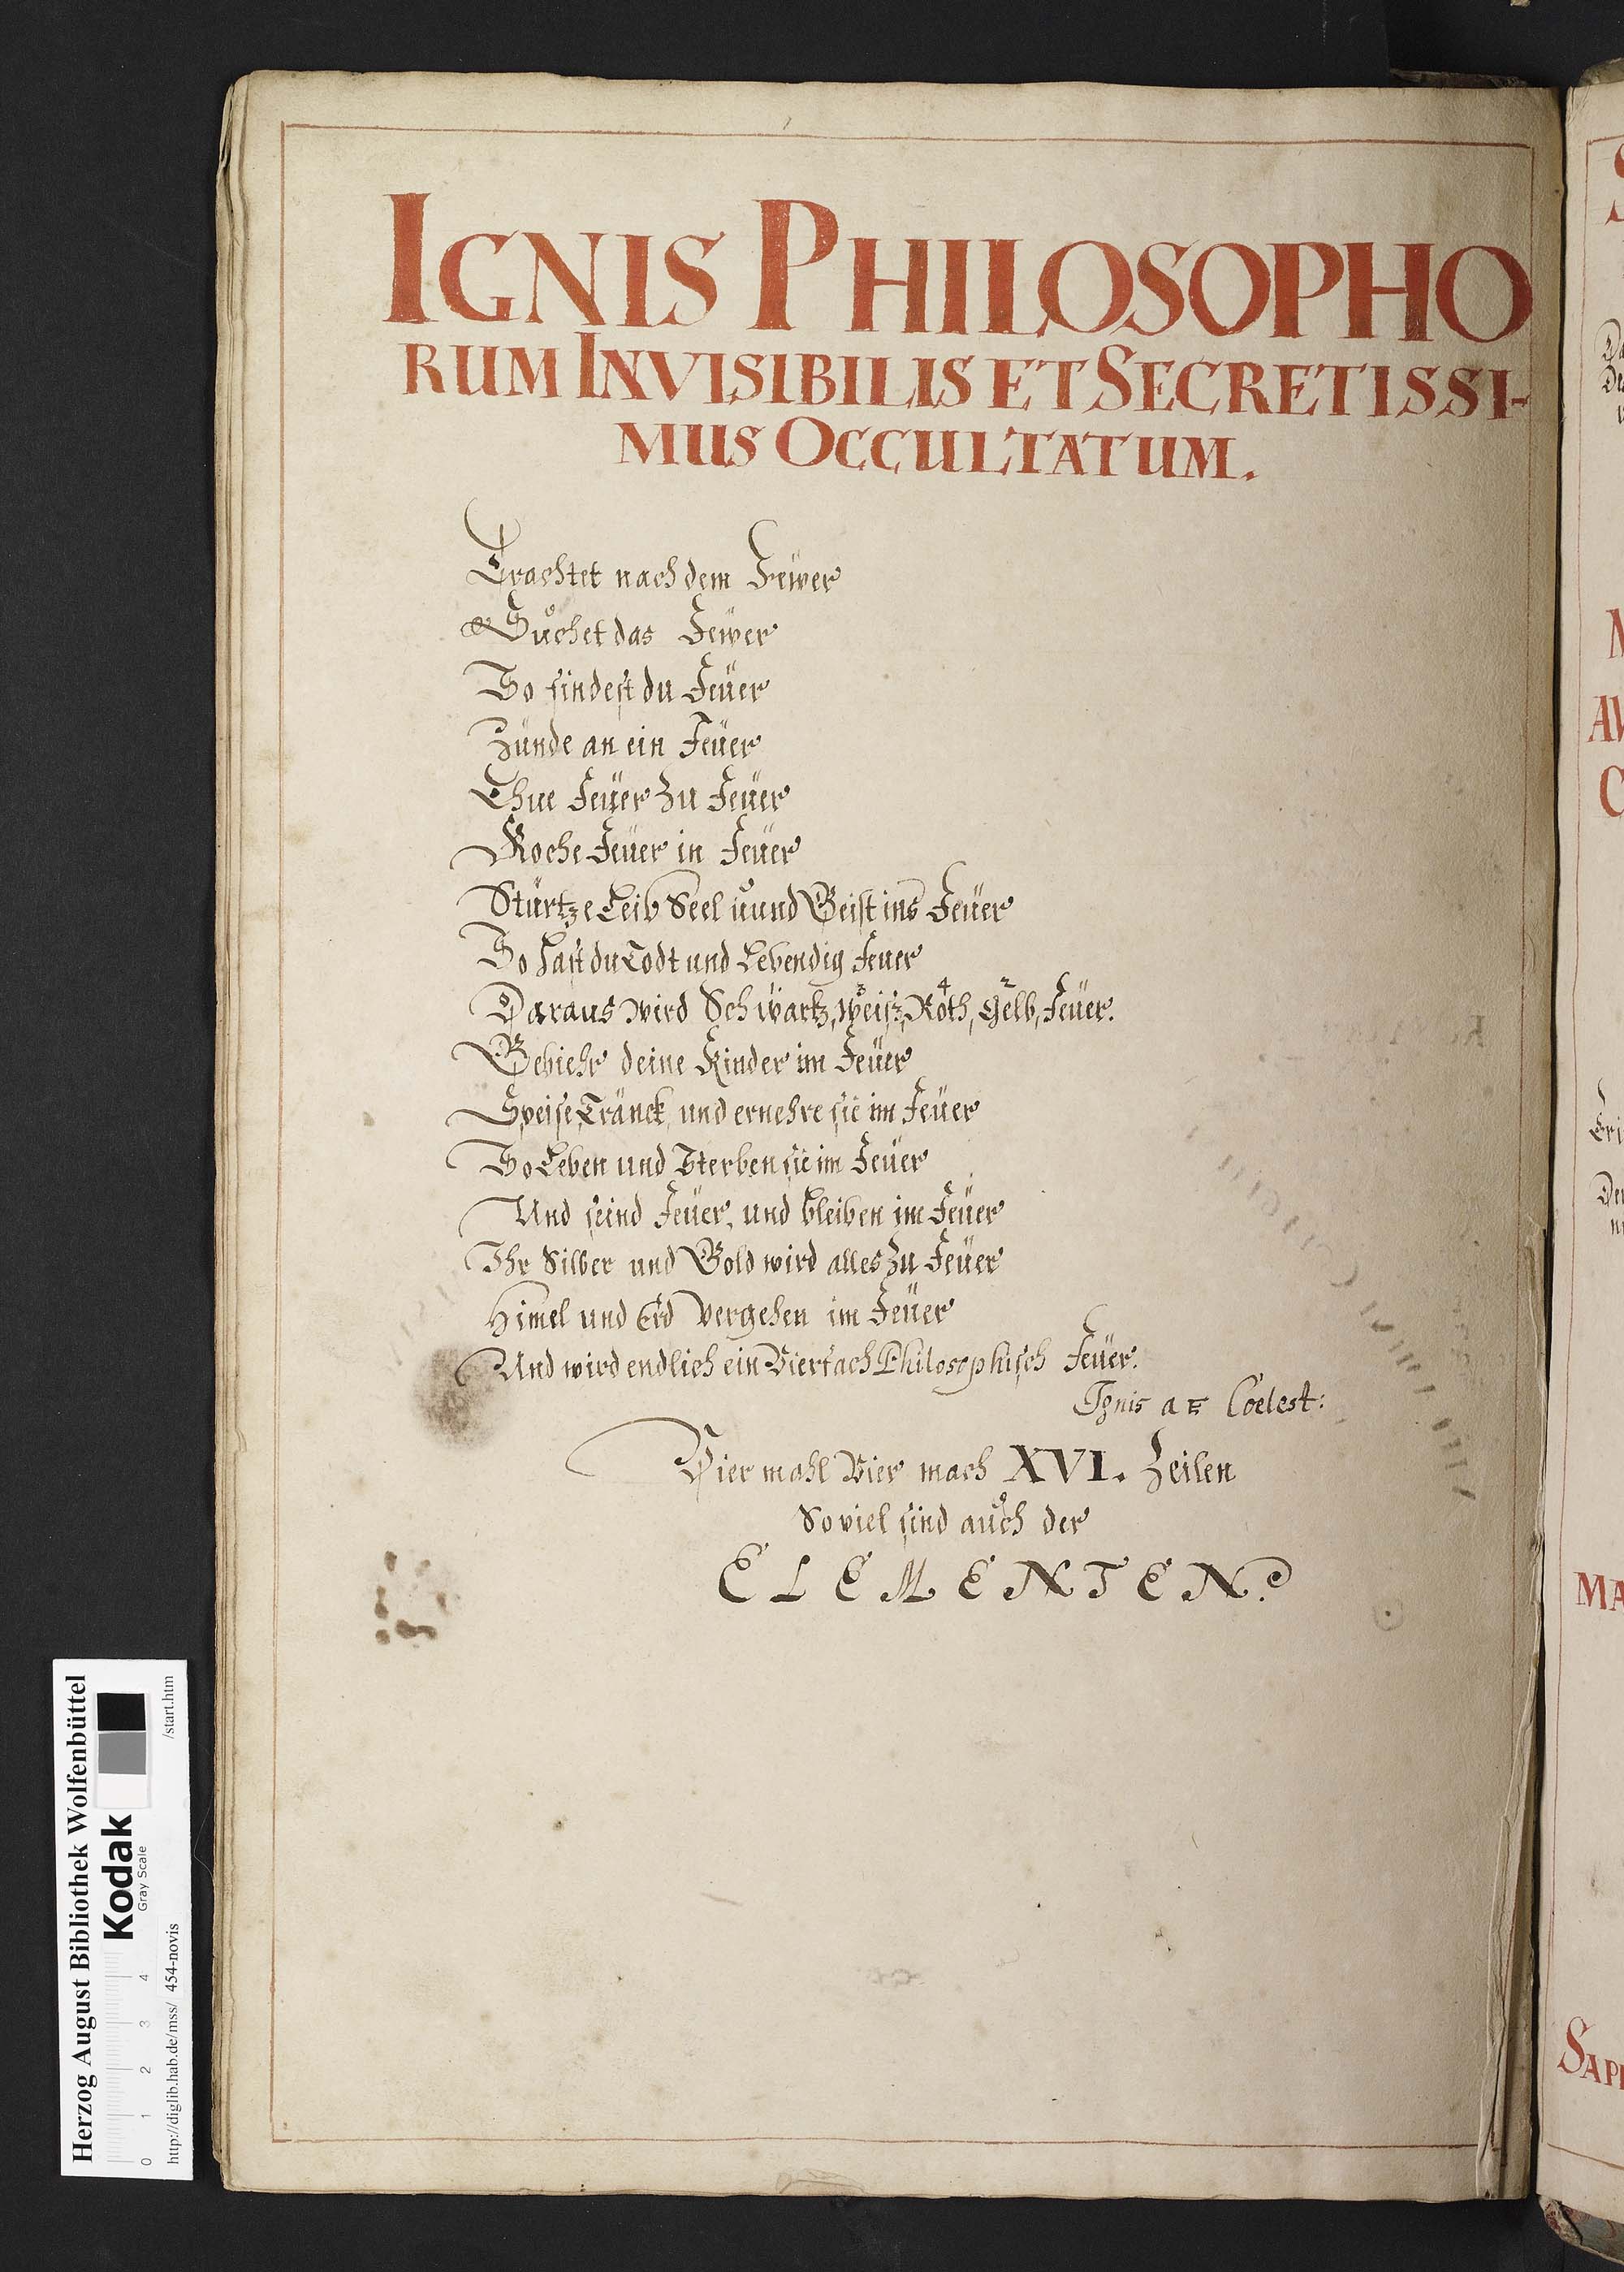 IGNIS PHILOSOPHO
RUM INVISIBILIS ET SECRETISSI-
MUS OCCULTATUM.
Trachtet nach dem Fewer
Suchet das Fewer
So findest du Feüer
Zünde an ein Feüer
Thue Feüer zu Feüer
Koche Feüer in Feüer
Stürtze Leib Seel und Geist ins Feüer
So hast du Todt und Lebendig Feuer
Daraus wird Schwartz, Weisz, Roth, Gelb, Feüer.
3 4 2
Gebiehr deine Kinder im Feüer
Speise, Tränck und ernehre sie im Feüer
So Leben und Sterben sie im Feüer
Und seind Feüer, und bleiben im Feüer
Ihr Silber und Gold wird alles zu Feüer
Himel und Erd vergehen im Feüer
Und wird endlich ein Vierfach Philosophisch Feüer.
Ignis Coelest:
Vier mahl Vier mach XVI. Zeilen
So viel sind auch der
ELEMENTEN.
Herzog August Bibliothek Wolfenbüttel
Kodak
Gray Scale
0 1 2 3 4
http://diglib.hab.de/mss/ 454-novis /start.htm
MA
SAP